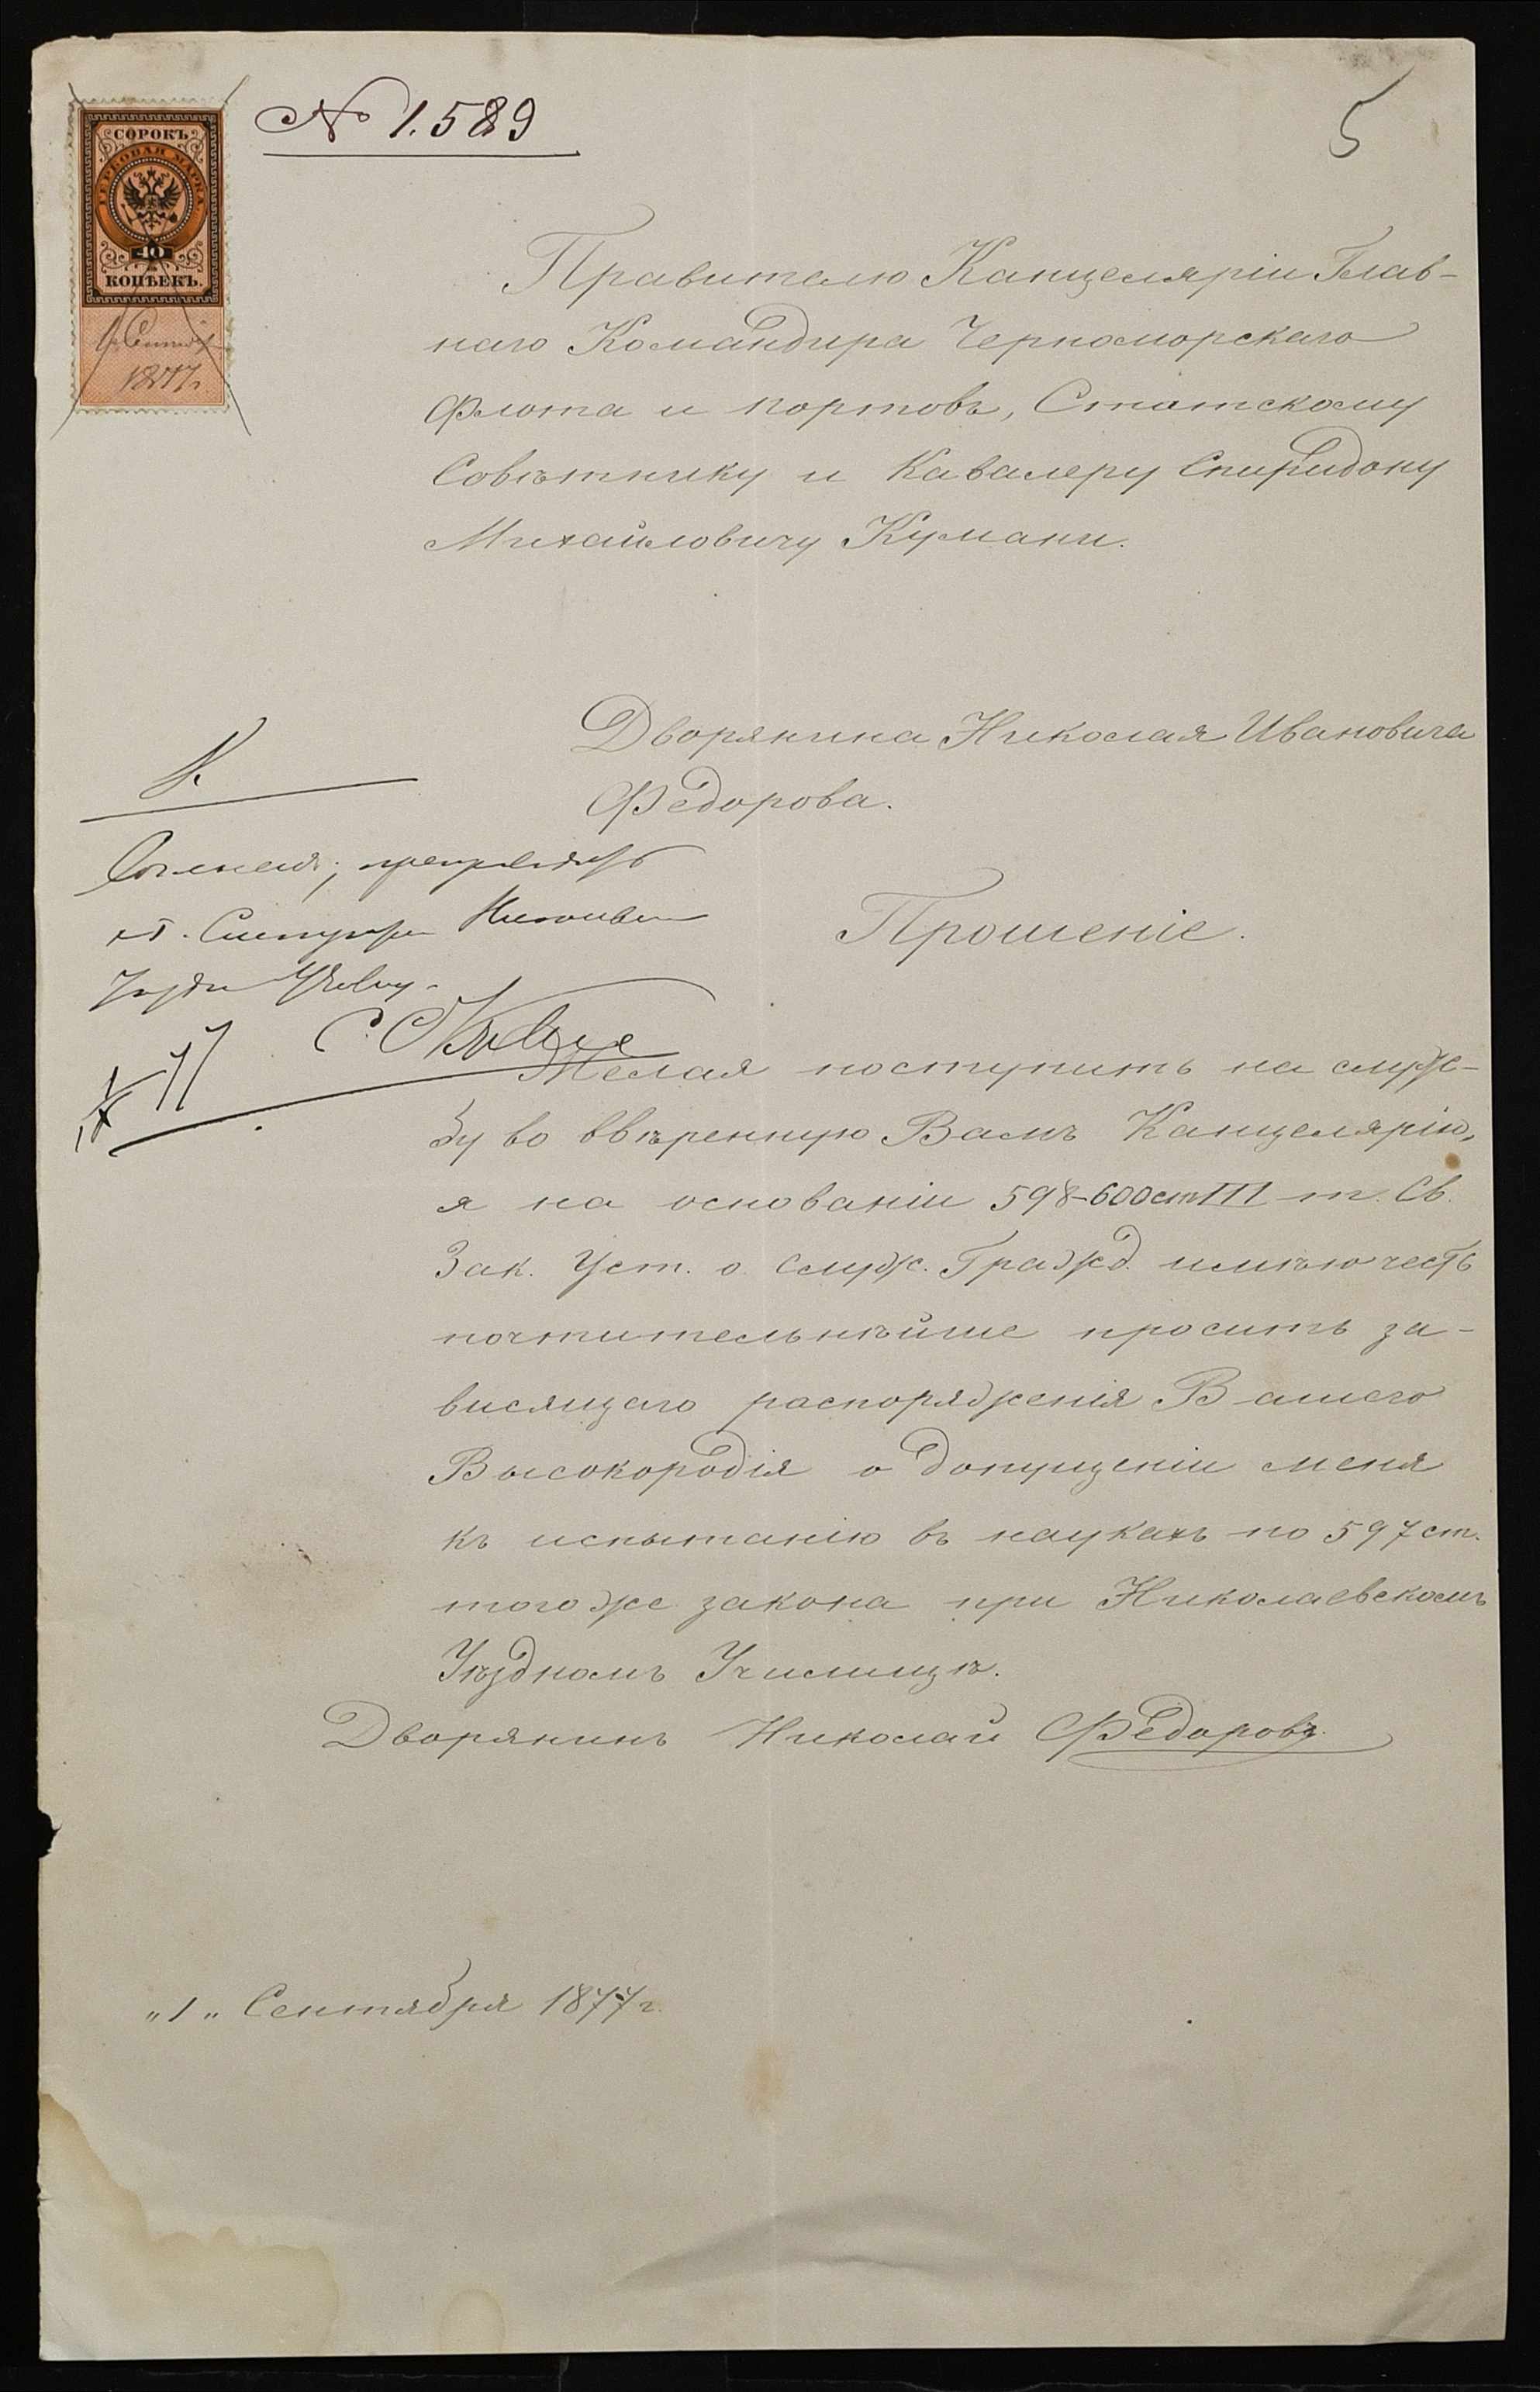 № 1.589
5
СОРОКЪ
ГЕРБОВАЯ МАРКА
40
КОПѢЕКЪ.
1 Сентяб
1877 г.
Правителю Канцеляріи Глав-
наго Командира Черноморскаго
Флота и портовъ, Статскому
Совѣтнику и Кавалеру Спиридону
Михайловичу Кумани.
Дворянина Николая Ивановича
Федорова.
Прошеніе.
Желая поступить на служ-
бу во ввѣренную Вамъ Канцелярію,
я на основаніи 598-600 ст III т. Св.
Зак. Уст. о служ. Гражд. имѣю честь
почтительнѣйше просить за-
висящаго распоряженія Вашего
Высокородія о допущеніи меня
къ испытанію въ наукахъ по 597 ст.
того же закона при Николаевскомъ
Уѣздномъ Училищѣ.
Дворянинъ Николай Федоровъ.
„1„ Сентября 1877 г.